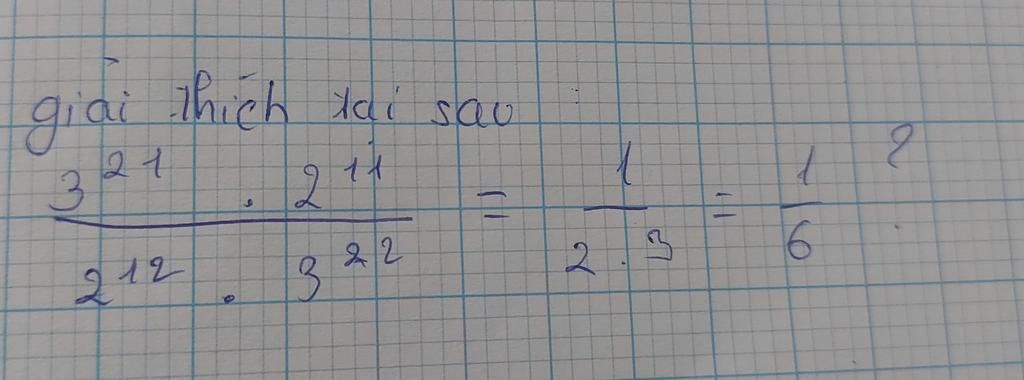 giải thích tại sao :
\frac{3^{21} . 2^{11}}{2^{12} . 3^{22}} = \frac{1}{2 . 3} = \frac{1}{6} ?